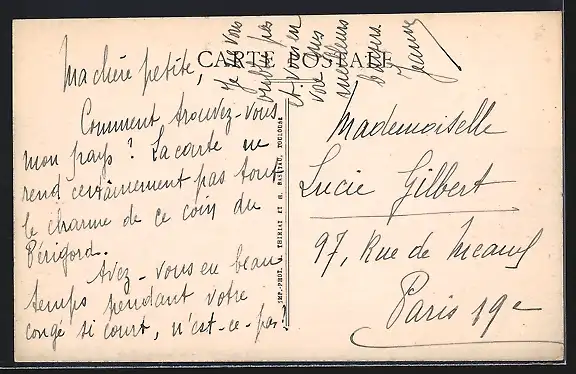 CARTE POSTALE
Ma chère petite,
Comment trouvez-vous
mon pays ? La carte ne
rend certainement pas tout
le charme de ce coin du
Périgord.
Avez-vous eu beau
temps pendant votre
congé si court, n'est-ce-pas ?
Je vous
oublie pas
et vous en
voie mes
meilleurs
baisers
Jeanne
IMP.-PHOT. A. THIRIAT ET H. BASUYAU, TOULOUSE
Mademoiselle
Lucie Gilbert
97, Rue de Meaux
Paris 19e